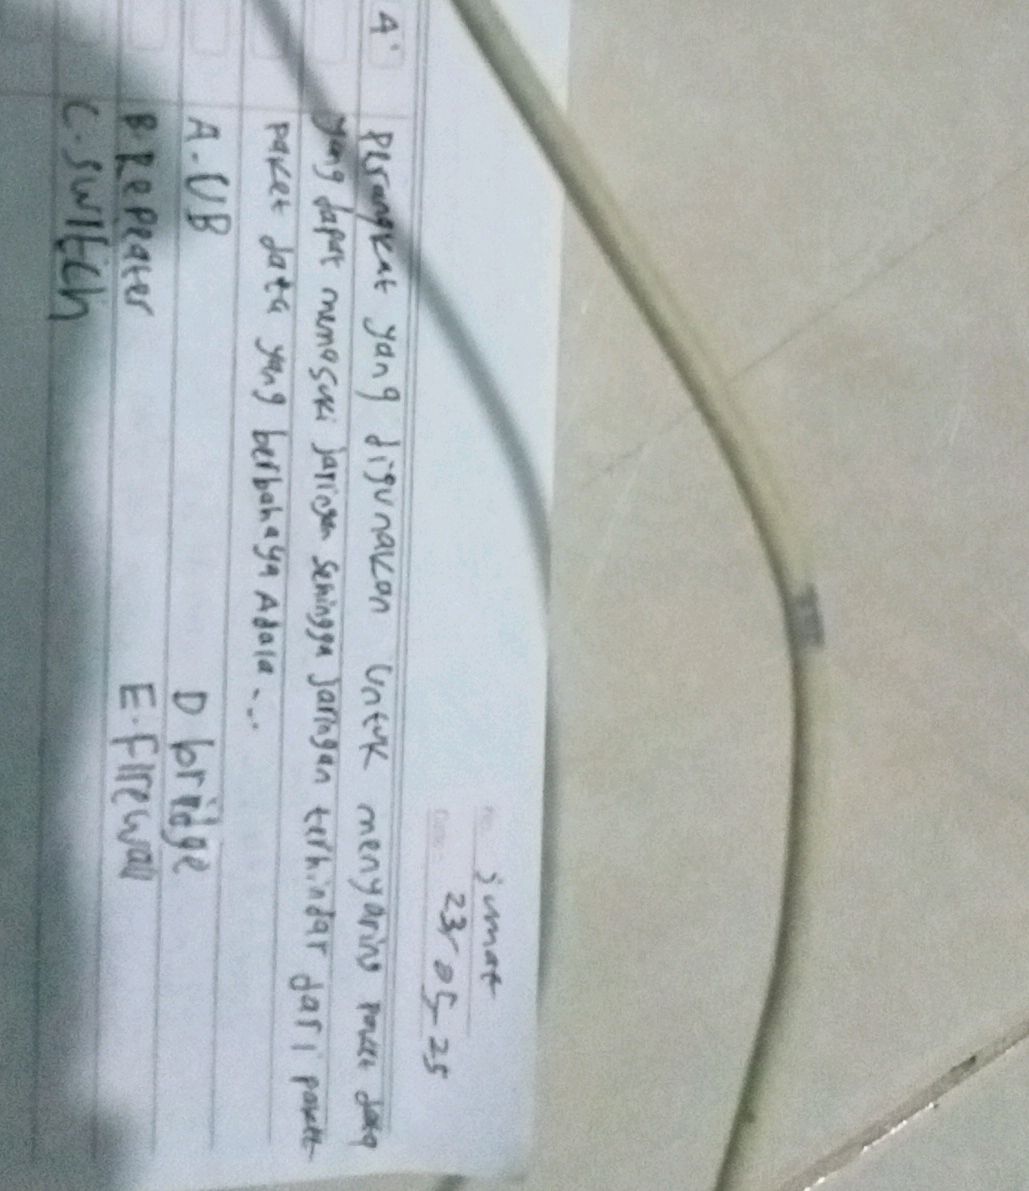 jumat
23-05-25
4. Perangkat yang digunakan untuk menyaring paket data
yang dapat memasuki jaringan sehingga jaringan terhindar dari paket
paket data yang berbahaya Adala...
A. UB D bridge
B. Repeater E. Firewall
C. Switch